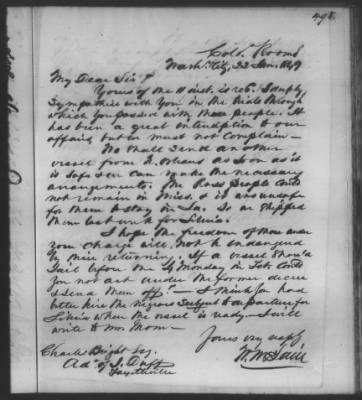 498.
Colo. Rooms
Wash. City, 22 Jan. 1849
My Dear Sir,
Yours of the 11 inst. is rec. I deeply
Sympathise with you in the trials through
which you passed with these people. It
has been a great interruption to our
affairs, but we must not complain —
We shall send another
vessel from N. Orleans as soon as it
is safe & we can make the necessary
arrangements. The Ross people could
not remain in Miss. & it was unsafe
for them to stay in La. So we shipped
them last week for Liberia.
I hope the freedom of those under
your charge will not be endangered
by their returning. If a vessel should
sail before the 4th Monday in Feb. could
you not act under the former decree
& send them off? — I think you had
better hire the negroes subject to a departure for
Liberia when the vessel is ready. I will
write to Mr. Moore —
Yours very resply
W. McLain
Charles Bright Esq.
Ad. of
Fayetteville